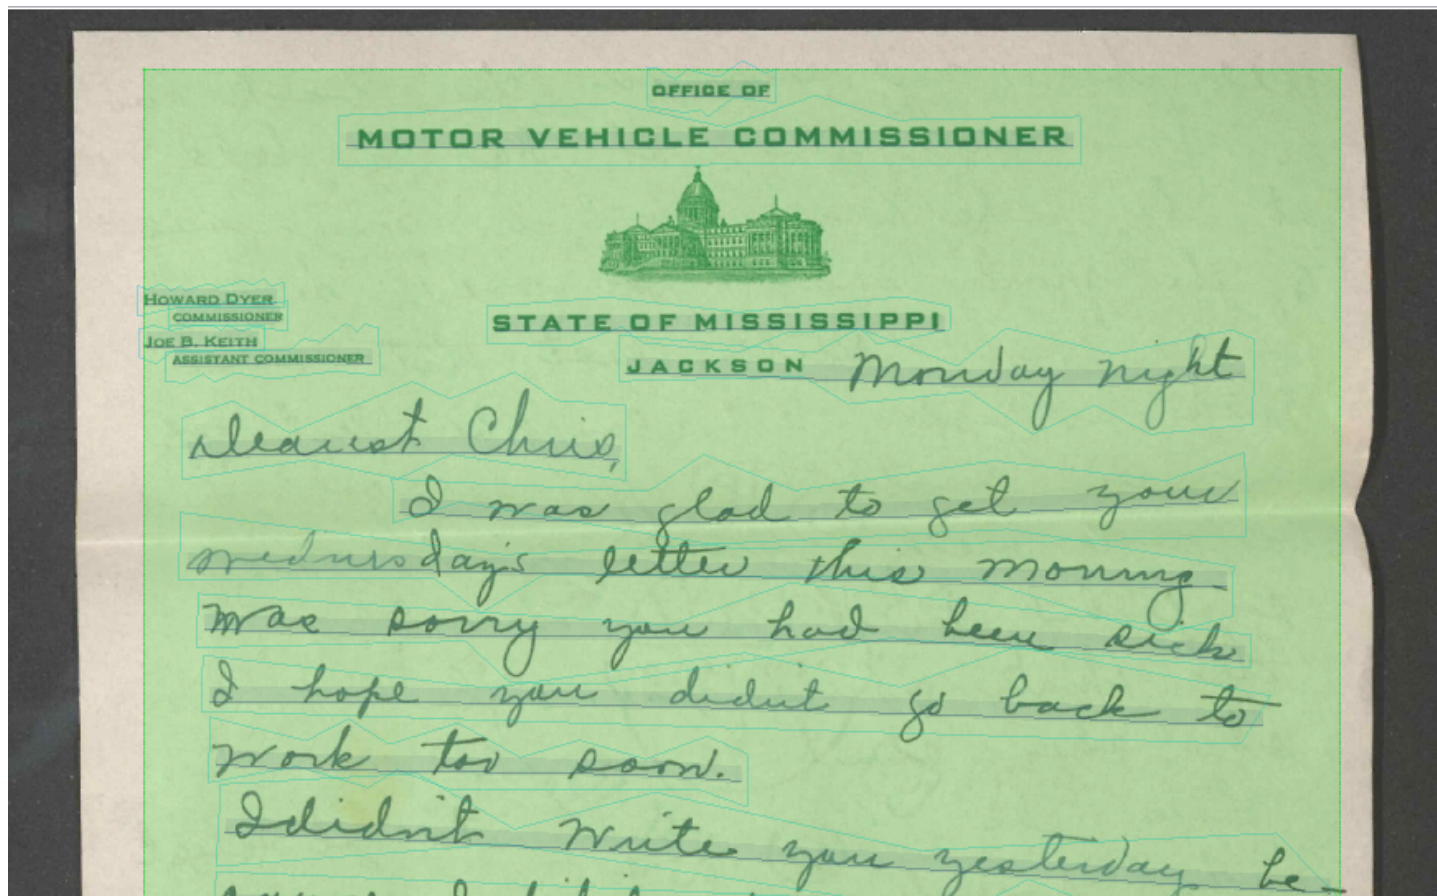 OFFICE OF
MOTOR VEHICLE COMMISSIONER
HOWARD DYER
COMMISSIONER
JOE B. KEITH
ASSISTANT COMMISSIONER
STATE OF MISSISSIPPI
JACKSON Monday night
Dearest Chris,
I was glad to get your
Wednesday's letter this morning
was sorry you had been sick
I hope you didn't go back to
work too soon.
I didn't write you yesterday be